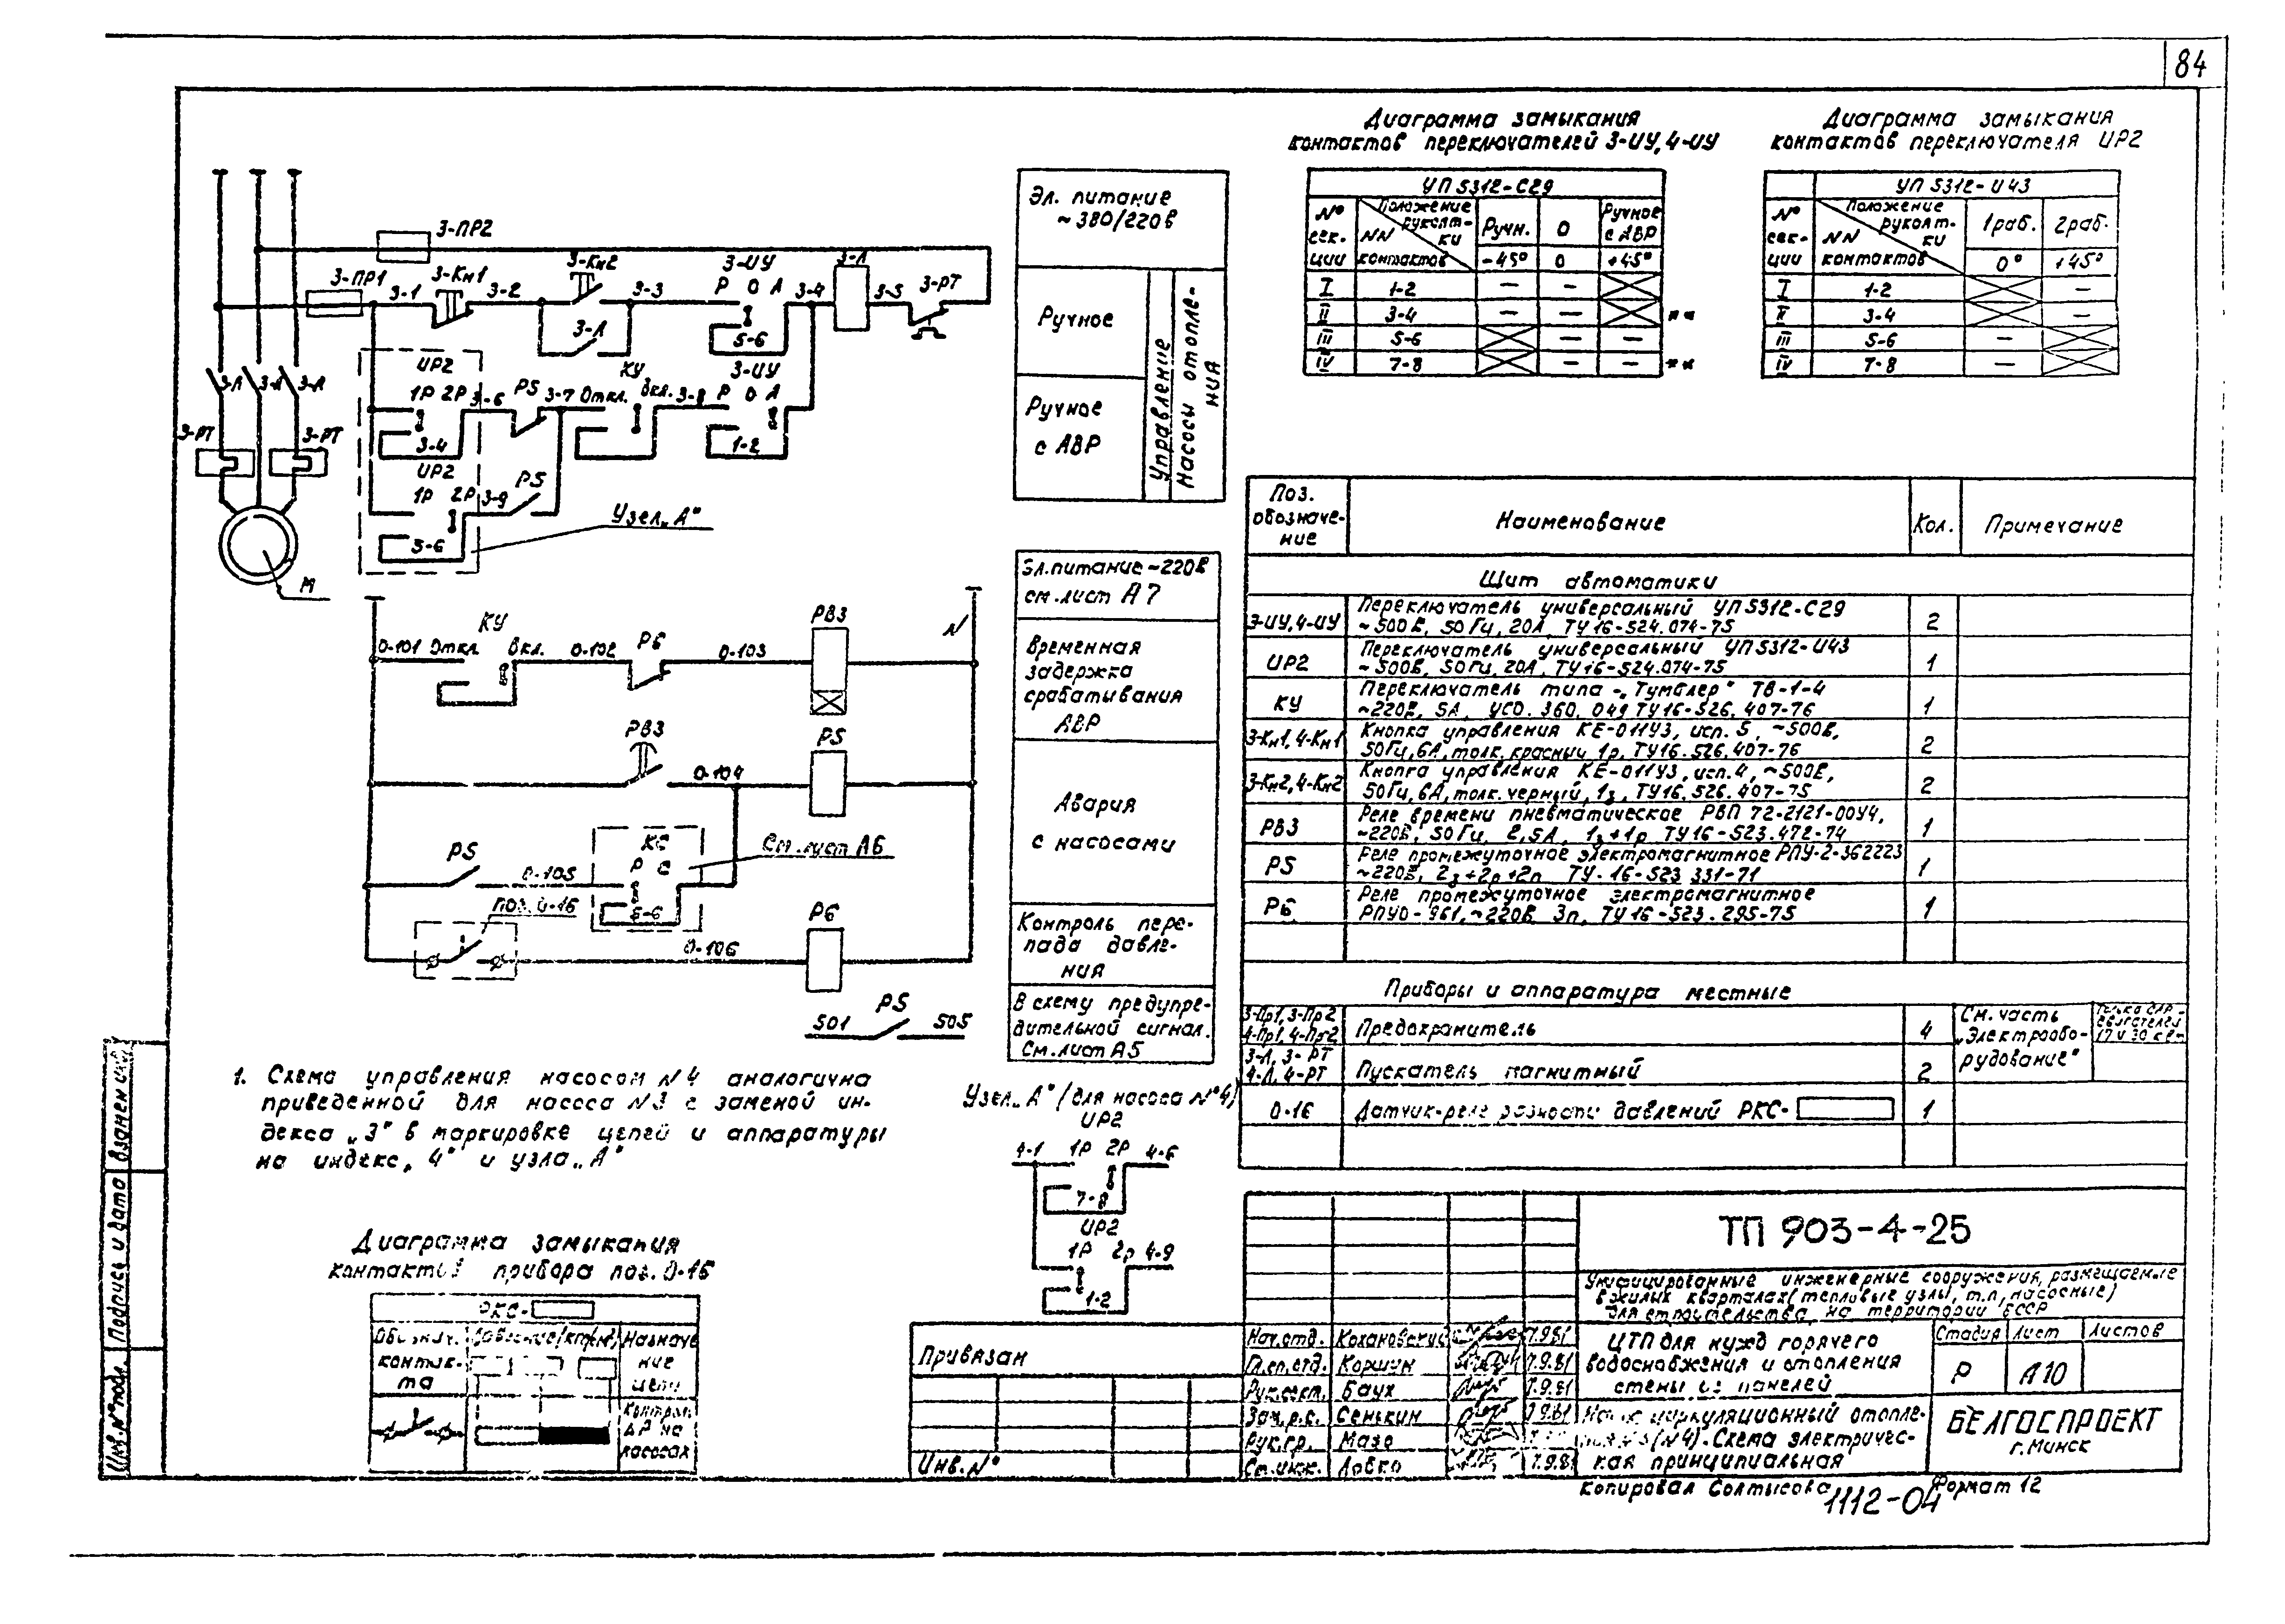 84
Диаграмма замыкания
контактов переключателей 3-ИУ, 4-ИУ
УП 5312-С29
№ сек-
ции
Положение
рукоят-
ки
NN
контактов
Ручн.
0
Ручное
с АВР
-45°
0
+45°
I 1-2 — —
II 3-4 — —
III 5-6 — —
IV 7-8 — —
Диаграмма замыкания
контактов переключателя ИР2
УП 5312-И43
№ сек-
ции
Положение
рукоят-
ки
NN
контактов
1раб.
2раб.
0°
+45°
I 1-2 —
II 3-4 —
III 5-6 —
IV 7-8 —
3-ПР2
3-ПР1
3-1
3-Кн1
3-2
3-Кн2
3-Л
3-3
3-ИУ
Р О А
5-6
3-4
3-Л
3-5
3-РТ
3-Л 3-Л 3-Л
3-РТ
3-РТ
М
ИР2
1Р 2Р
3-4
3-6
Р5
3-7
КУ
Откл.
Вкл.
3-8
3-ИУ
Р О А
1-2
ИР2
1Р 2Р
5-6
3-9
Р5
Узел „А"
Эл. питание
~ 380/220в
Ручное
Ручное
с АВР
Управление
Насосы отопле-
ния
0-101
Откл.
КУ
Вкл.
0-102
Р6
0-103
РВ3
N
РВ3
0-104
Р5
Р5
0-105
КС
Р С
5-6
См. лист А6
поз. 0-16
0-106
Р6
501
Р5
505
Эл.питание ~220в
см. лист А7
Временная
задержка
срабатывания
АВР
Авария
с насосами
Контроль пере-
пада давле-
ния
В схему предупре-
дительной сигнал.
См. лист А5
1. Схема управления насосом N4 аналогична
приведенной для насоса N3 с заменой ин-
декса „3" в маркировке цепей и аппаратуры
на индекс „4" и узла „А"
Узел „А" (для насоса №4)
ИР2
4-1
1Р 2Р
4-6
7-8
ИР2
1Р 2Р
4-9
1-2
Диаграмма замыкания
контактов прибора поз. 0-16
РКС-
Обознач.
контак-
та
Назначе
ние
цепи
Контрол.
ΔР на
насосах
Поз.
обозначе-
ние
Наименование
Кол.
Примечание
Щит автоматики
3-ИУ, 4-ИУ
Переключатель универсальный УП5312-С29
~500В, 50Гц, 20А, ТУ16-524.074-75
2
ИР2
Переключатель универсальный УП5312-И43
~500В, 50Гц, 20А, ТУ16-524.074-75
1
КУ
Переключатель типа „Тумблер" ТВ-1-4
~220В, 5А, УСО. 360. 049 ТУ16-526. 407-76
1
3-Кн1, 4-Кн1
Кнопка управления КЕ-011У3, исп. 5, ~500В,
50Гц, 6А, толк. красный 1р. ТУ16.526.407-76
2
3-Кн2, 4-Кн2
Кнопка управления КЕ-011У3, исп. 4, ~500В,
50Гц, 6А, толк. черный, 1з, ТУ16.526.407-75
2
РВ3
Реле времени пневматическое РВП 72-2121-00У4,
~220В, 50Гц, 2,5А, 1з+1р ТУ16-523.472-74
1
Р5
Реле промежуточное электромагнитное РПУ-2-362223
~220В, 2з+2р+2п ТУ-16-523 331-71
1
Р6
Реле промежуточное электромагнитное
РПУ0-961, ~220В 3п, ТУ16-523.295-75
1
Приборы и аппаратура местные
3-Пр1, 3-Пр2
4-Пр1, 4-Пр2
Предохранитель
4
См. часть
„Электрообо-
рудование"
Только для
двигателей
17 и 30 квт
3-Л, 3-РТ
4-Л, 4-РТ
Пускатель магнитный
2
0-16
Датчик-реле разности давлений РКС-
1
ТП 903-4-25
Унифицированные инженерные сооружения, размещаемые
в жилых кварталах (тепловые узлы, т.п., насосные)
для строительства на территории БССР
ЦТП для нужд горячего
водоснабжения и отопления
стены из панелей
Стадия
Лист
Листов
Р
А10
Насос циркуляционный отопле-
ния №3 (N4). Схема электричес-
кая принципиальная
БЕЛГОСПРОЕКТ
г. Минск
Нач.отд. Кохановский 7.9.81
Гл.сп.отд. Коршин 7.9.81
Рук.сект. Баух 7.9.81
Зам.р.с. Сенькин 7.9.81
Рук.гр. Мазо
Ст.инж. Ловко 7.9.81
Привязан
Инв.№
Инв.№подл.
Подпись и дата
Взамен инв.№
Копировал Солтысова
1112-04
Формат 12